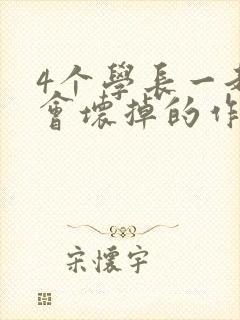 4个學長一
會壞掉的作
宋懷宇